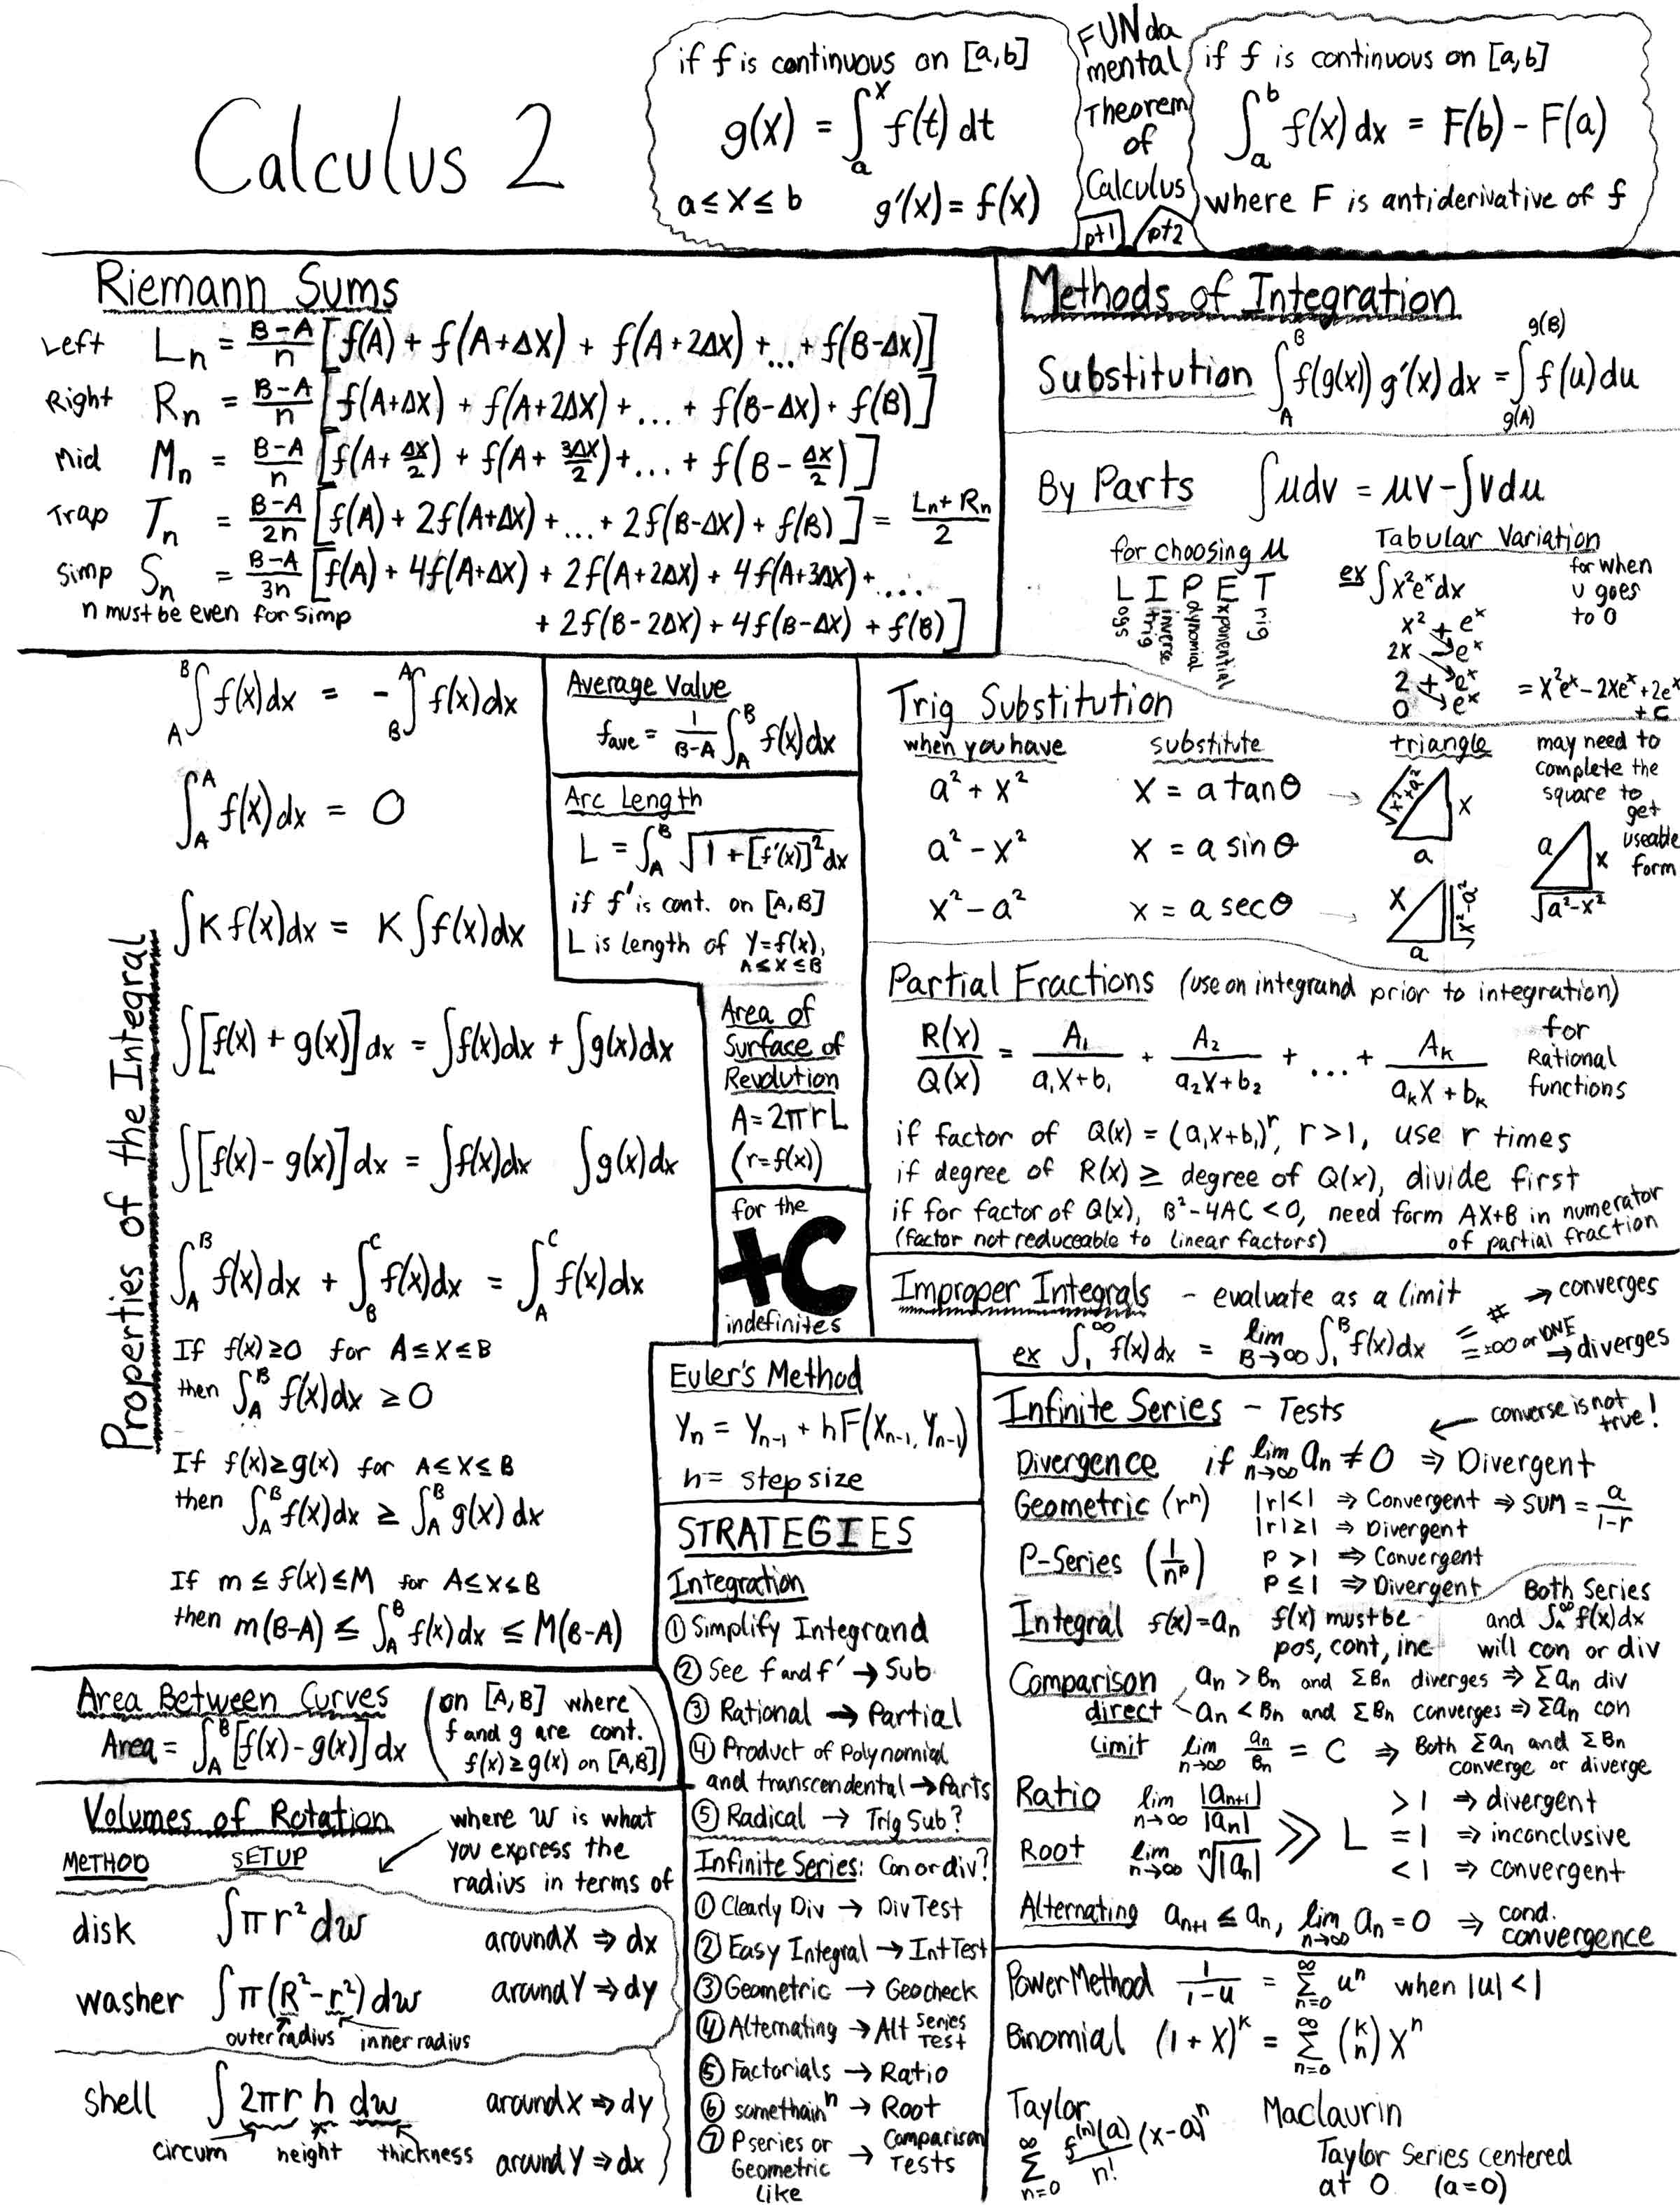 Calculus 2
if f is continuous on [a,b]
g(x) = ∫ₐˣ f(t) dt
a ≤ x ≤ b    g'(x) = f(x)
FUNda
mental
Theorem
of
Calculus
pt1 pt2
if f is continuous on [a,b]
∫ₐᵇ f(x) dx = F(b) - F(a)
where F is antiderivative of f
Riemann Sums
Left Lₙ = (B-A)/n [f(A) + f(A+Δx) + f(A+2Δx) +...+ f(B-Δx)]
Right Rₙ = (B-A)/n [f(A+Δx) + f(A+2Δx) +...+ f(B-Δx) + f(B)]
Mid Mₙ = (B-A)/n [f(A+ Δx/2) + f(A+ 3Δx/2) +...+ f(B - Δx/2)]
Trap Tₙ = (B-A)/2n [f(A) + 2f(A+Δx) +...+ 2f(B-Δx) + f(B)] = (Lₙ+Rₙ)/2
Simp Sₙ = (B-A)/3n [f(A) + 4f(A+Δx) + 2f(A+2Δx) + 4f(A+3Δx) +...
n must be even for simp + 2f(B-2Δx) + 4f(B-Δx) + f(B)]
Methods of Integration
Substitution ∫_A^B f(g(x)) g'(x) dx = ∫_g(A)^g(B) f(u) du
By Parts ∫udv = uv - ∫vdu
for choosing u
L I P E T
ogs
inverse trig
olynomial
xponential
rig
Tabular Variation
ex ∫x²eˣdx
for when
u goes
to 0
x² + eˣ
2x - eˣ
2 + eˣ
0 eˣ
= x²eˣ - 2xeˣ + 2eˣ
+ C
Properties of the Integral
∫_A^B f(x)dx = -∫_B^A f(x)dx
∫_A^A f(x)dx = 0
∫K f(x)dx = K∫f(x)dx
∫[f(x) + g(x)]dx = ∫f(x)dx + ∫g(x)dx
∫[f(x) - g(x)]dx = ∫f(x)dx ∫g(x)dx
∫_A^B f(x)dx + ∫_B^C f(x)dx = ∫_A^C f(x)dx
If f(x) ≥ 0 for A ≤ x ≤ B
then ∫_A^B f(x)dx ≥ 0
If f(x) ≥ g(x) for A ≤ x ≤ B
then ∫_A^B f(x)dx ≥ ∫_A^B g(x)dx
If m ≤ f(x) ≤ M for A ≤ x ≤ B
then m(B-A) ≤ ∫_A^B f(x)dx ≤ M(B-A)
Average Value
f_ave = 1/(B-A) ∫_A^B f(x)dx
Arc Length
L = ∫_A^B √(1+[f'(x)]²) dx
if f' is cont. on [A,B]
L is length of y=f(x),
A ≤ x ≤ B
Area of
Surface of
Revolution
A = 2πrL
(r=f(x))
for the
+C
indefinites
Trig Substitution
when you have    substitute    triangle
a² + x²    x = a tanθ →    √x²+a²    x    a
a² - x²    x = a sinθ    a    x    √a²-x²
x² - a²    x = a secθ →    x    √x²-a²    a
may need to
complete the
square to
get
useable
form
Partial Fractions (use on integrand prior to integration)
R(x)/Q(x) = A₁/(a₁x+b₁) + A₂/(a₂x+b₂) +...+ A_k/(a_k x+b_k)
for
Rational
functions
if factor of Q(x) = (a₁x+b₁)ʳ, r>1, use r times
if degree of R(x) ≥ degree of Q(x), divide first
if for factor of Q(x), B²-4AC < 0, need form Ax+B in numerator
(factor not reduceable to linear factors) of partial fraction
Improper Integrals - evaluate as a limit
ex ∫₁^∞ f(x)dx = lim B→∞ ∫₁^B f(x)dx
= # ⇒ converges
= ±∞ or DNE ⇒ diverges
Euler's Method
yₙ = yₙ₋₁ + hF(xₙ₋₁, yₙ₋₁)
h = step size
STRATEGIES
Integration
① Simplify Integrand
② See f and f' → Sub
③ Rational → Partial
④ Product of Polynomial
and transcendental → Parts
⑤ Radical → Trig Sub?
Infinite Series: Con or div?
① Clearly Div → Div Test
② Easy Integral → Int Test
③ Geometric → Geocheck
④ Alternating → Alt Series Test
⑤ Factorials → Ratio
⑥ somethainⁿ → Root
⑦ P series or
Geometric
like
→ Comparison
Tests
Infinite Series - Tests
converse is not
true!
Divergence if lim n→∞ aₙ ≠ 0 ⇒ Divergent
Geometric (rⁿ) |r|<1 ⇒ Convergent ⇒ SUM = a/(1-r)
|r|≥1 ⇒ Divergent
P-Series (1/nᵖ) p > 1 ⇒ Convergent
p ≤ 1 ⇒ Divergent
Integral f(x)=aₙ f(x) must be
pos, cont, inc
Both Series
and ∫_A^∞ f(x)dx
will con or div
Comparison aₙ > Bₙ and ΣBₙ diverges ⇒ Σaₙ div
direct aₙ < Bₙ and ΣBₙ converges ⇒ Σaₙ con
Limit lim n→∞ aₙ/Bₙ = C ⇒ Both Σaₙ and ΣBₙ
converge or diverge
Ratio lim n→∞ |aₙ₊₁|/|aₙ|
Root lim n→∞ ⁿ√|aₙ|
L
>1 ⇒ divergent
=1 ⇒ inconclusive
<1 ⇒ convergent
Alternating aₙ₊₁ ≤ aₙ, lim n→∞ aₙ = 0 ⇒ cond.
convergence
Area Between Curves
Area = ∫_A^B [f(x) - g(x)] dx
(on [A,B] where
f and g are cont.
f(x) ≥ g(x) on [A,B])
Volumes of Rotation
where w is what
you express the
radius in terms of
METHOD    SETUP
disk ∫πr² dw    around x ⇒ dx
washer ∫π(R²-r²)dw    around y ⇒ dy
outer radius    inner radius
shell ∫2πr h dw    around x ⇒ dy
circum    height    thickness    around y ⇒ dx
Power Method 1/(1-u) = Σ_{n=0}^∞ uⁿ when |u|<1
Binomial (1+x)ᵏ = Σ_{n=0}^∞ (k n) xⁿ
Taylor
Σ_{n=0}^∞ f⁽ⁿ⁾(a)/n! (x-a)ⁿ
Maclaurin
Taylor Series centered
at 0 (a=0)